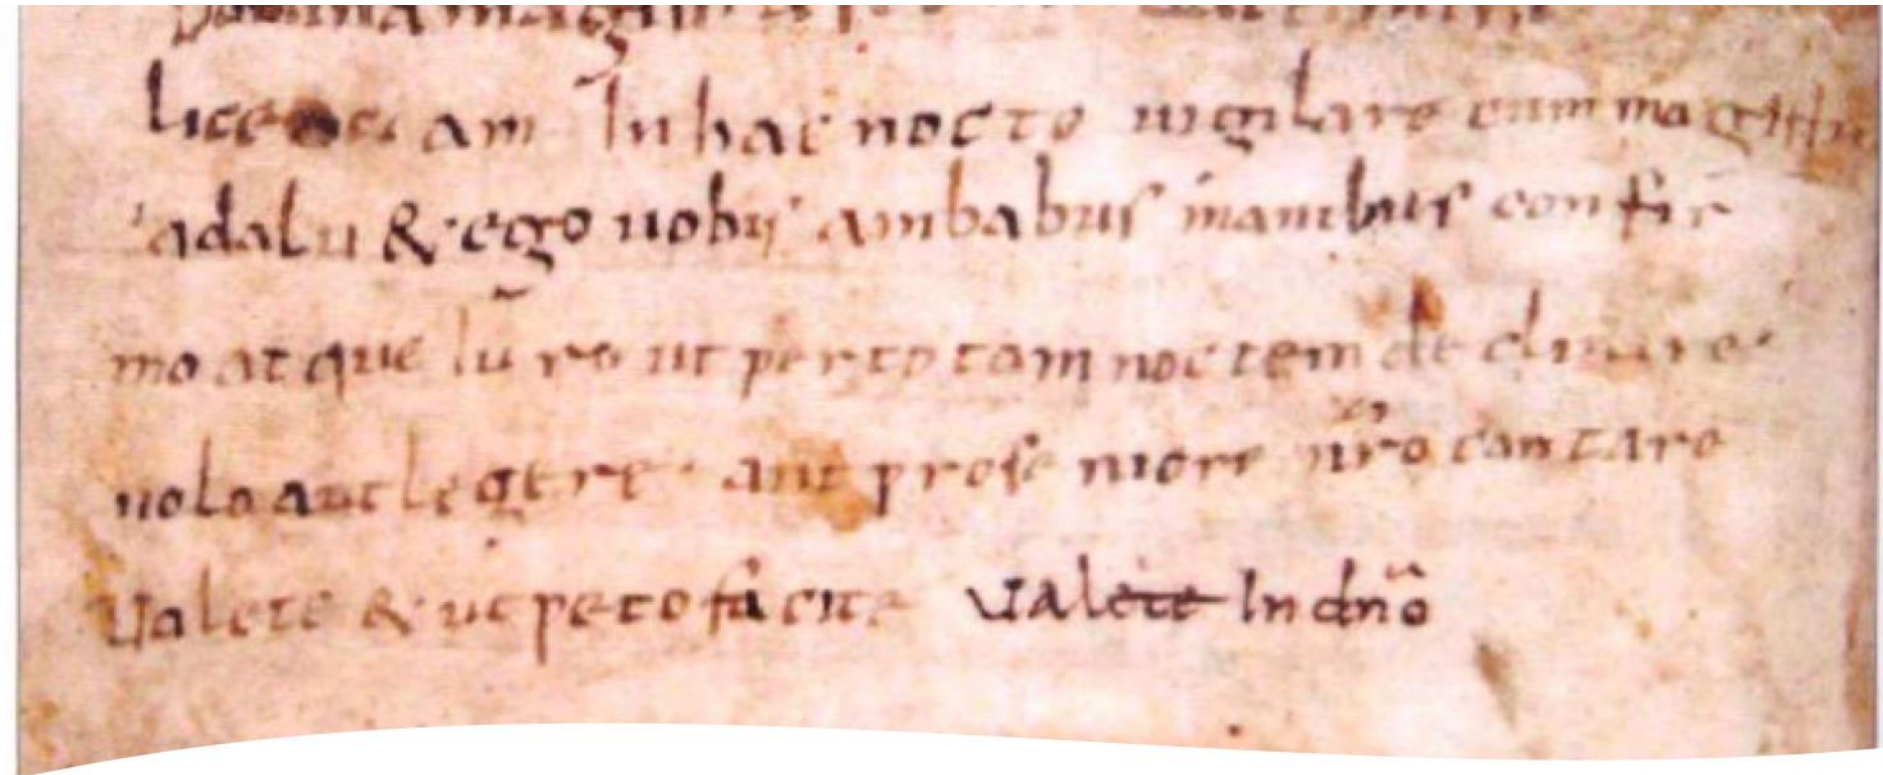 licenciam In hac nocte uigilare cum magistra
adalu & ego uobis ambabus manibus confir
mo atque Iuro ut per totam noctem declinare
uolo aut legere · aut pro se niore nr̄o cantare
Ualete & ut peto facite Ualete In dn̄o